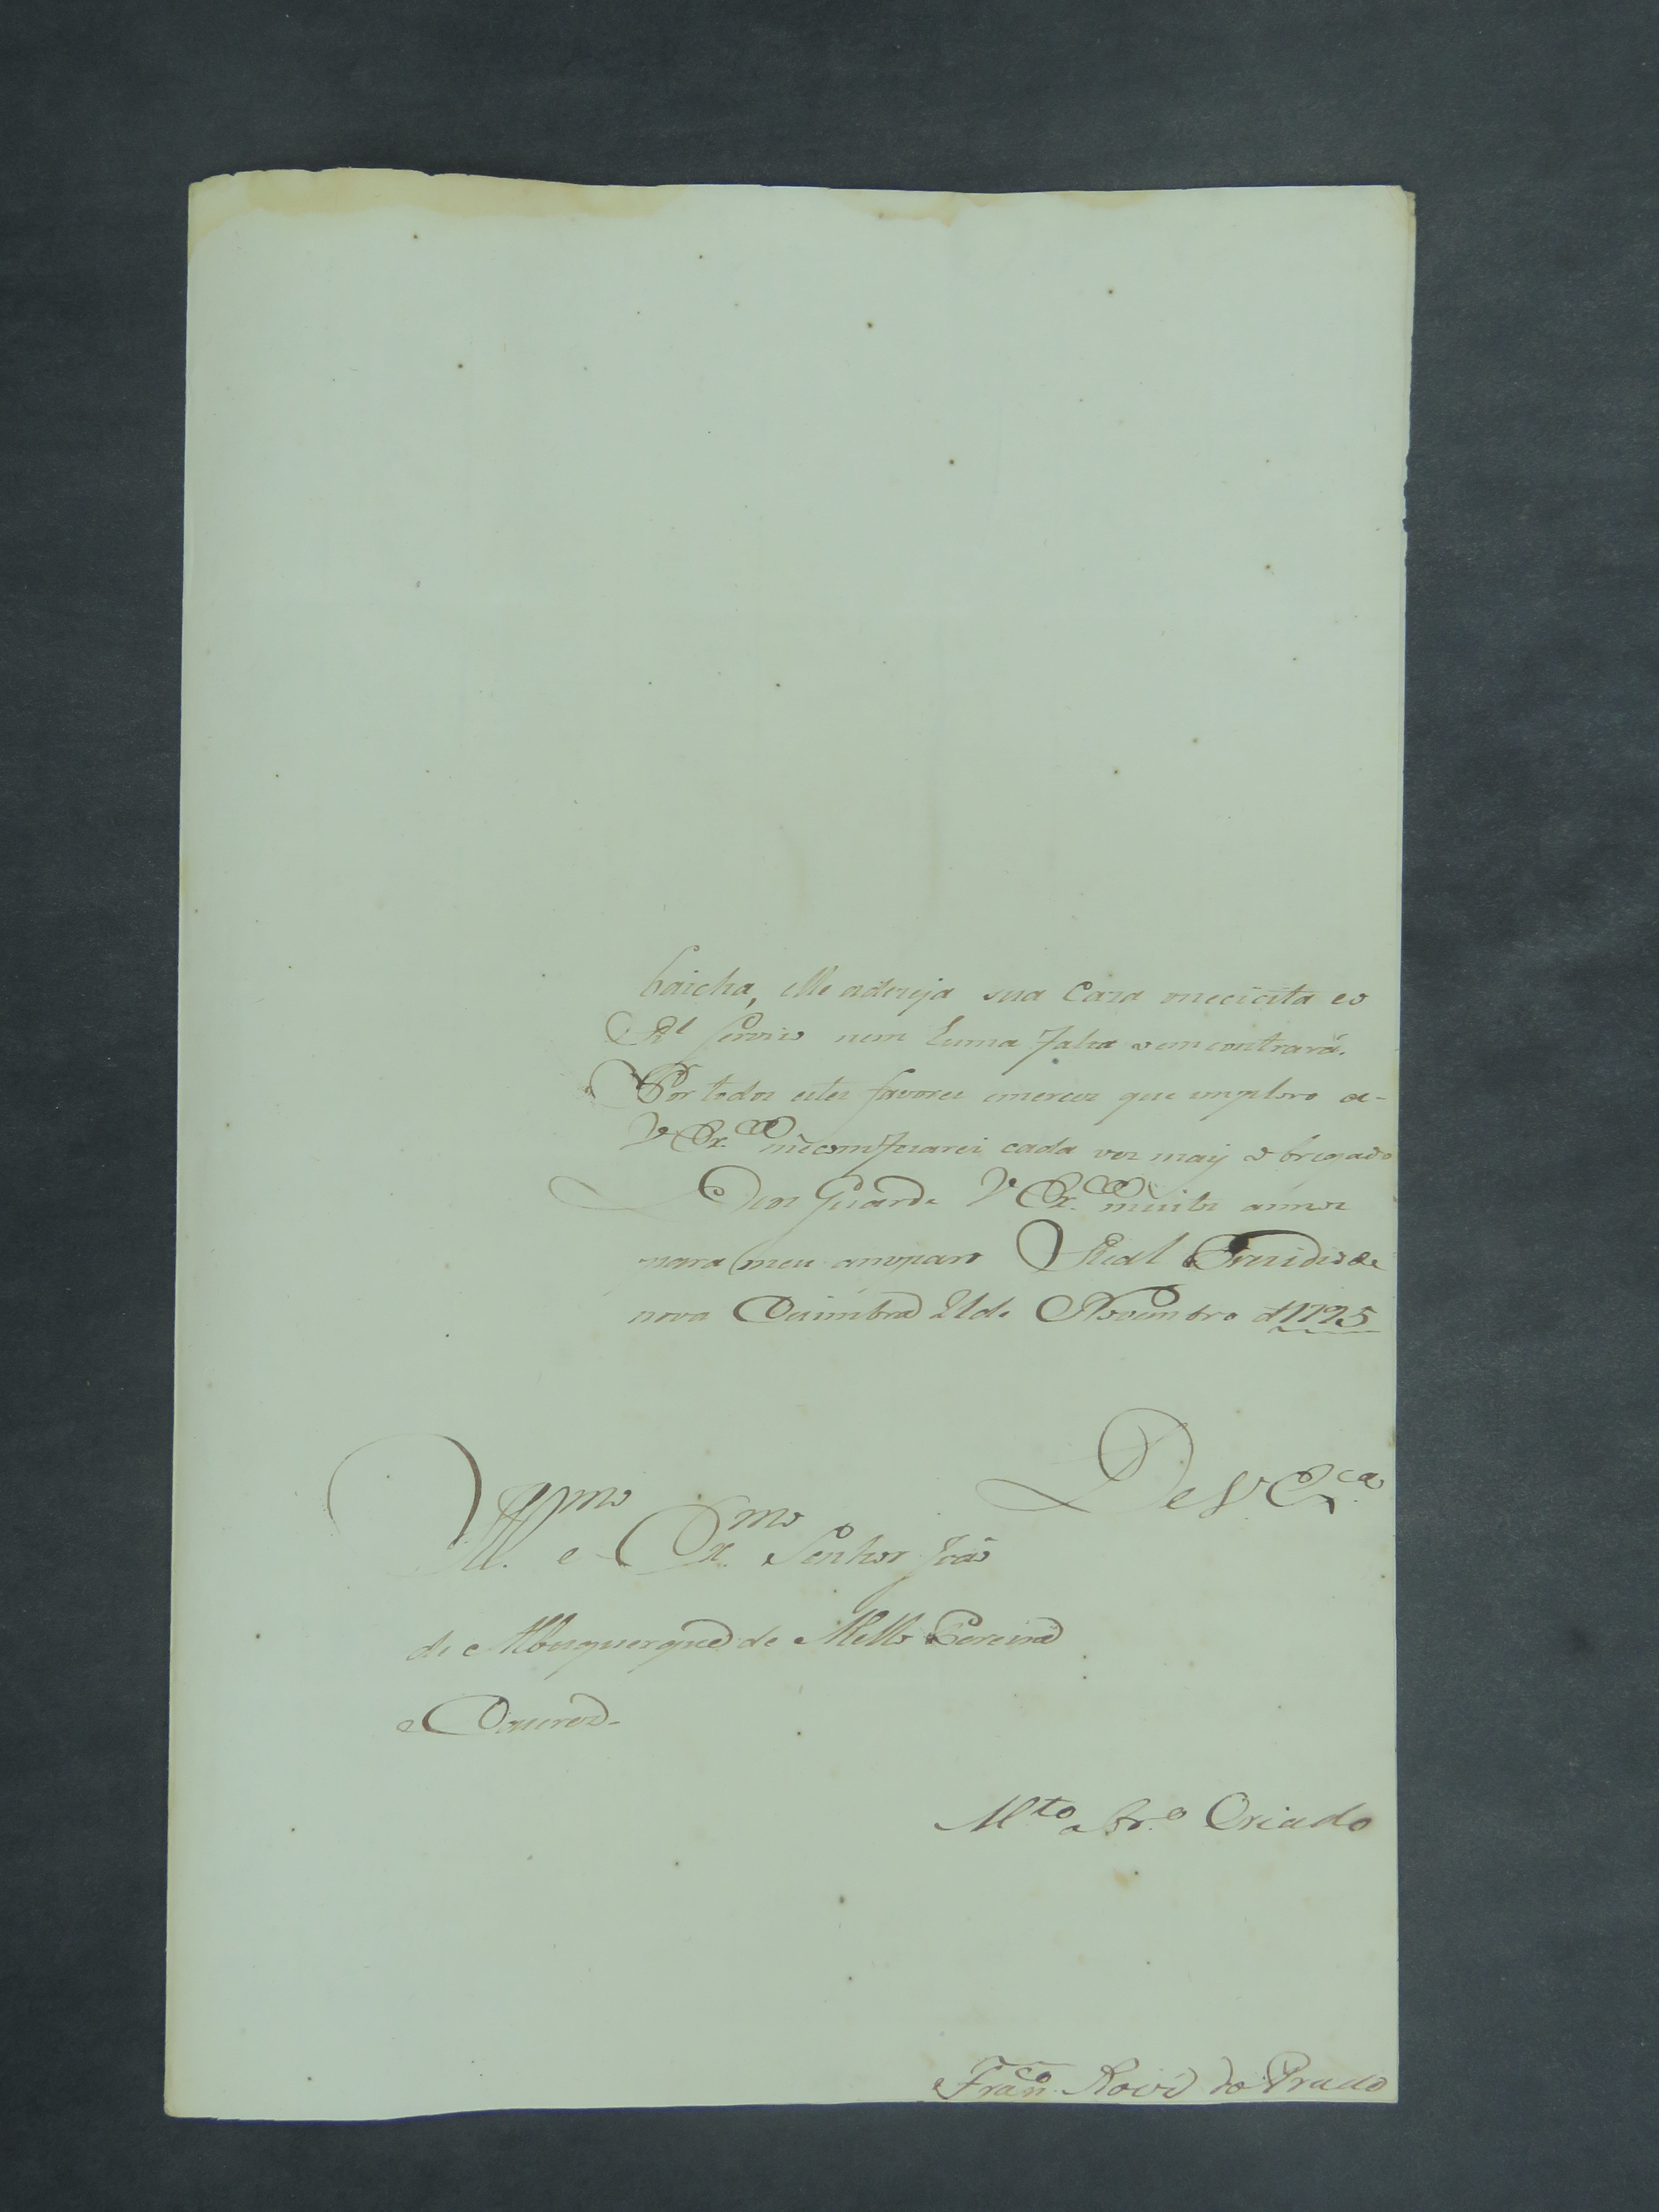 baicha, elle adeseja sua Caza onececita eo
Rl Serviso nem huma falta o emcontrará.
Por todos estes favores emerces que impploro a-
V Ex.ca me comfecarei cada vez maij obrigado
Deos Guarde V Ex.ca muitos annos
para meu amparo Real Prezidio de
nova Coimbra 21 de Novembro d1795
De V Ex.ca
Ill.mo e Ex.mo Senhor João
de Albuquerque de Mello Pereira
e Caceres-
M.to Obr.o Criado
Fran.co Roiz do Prado